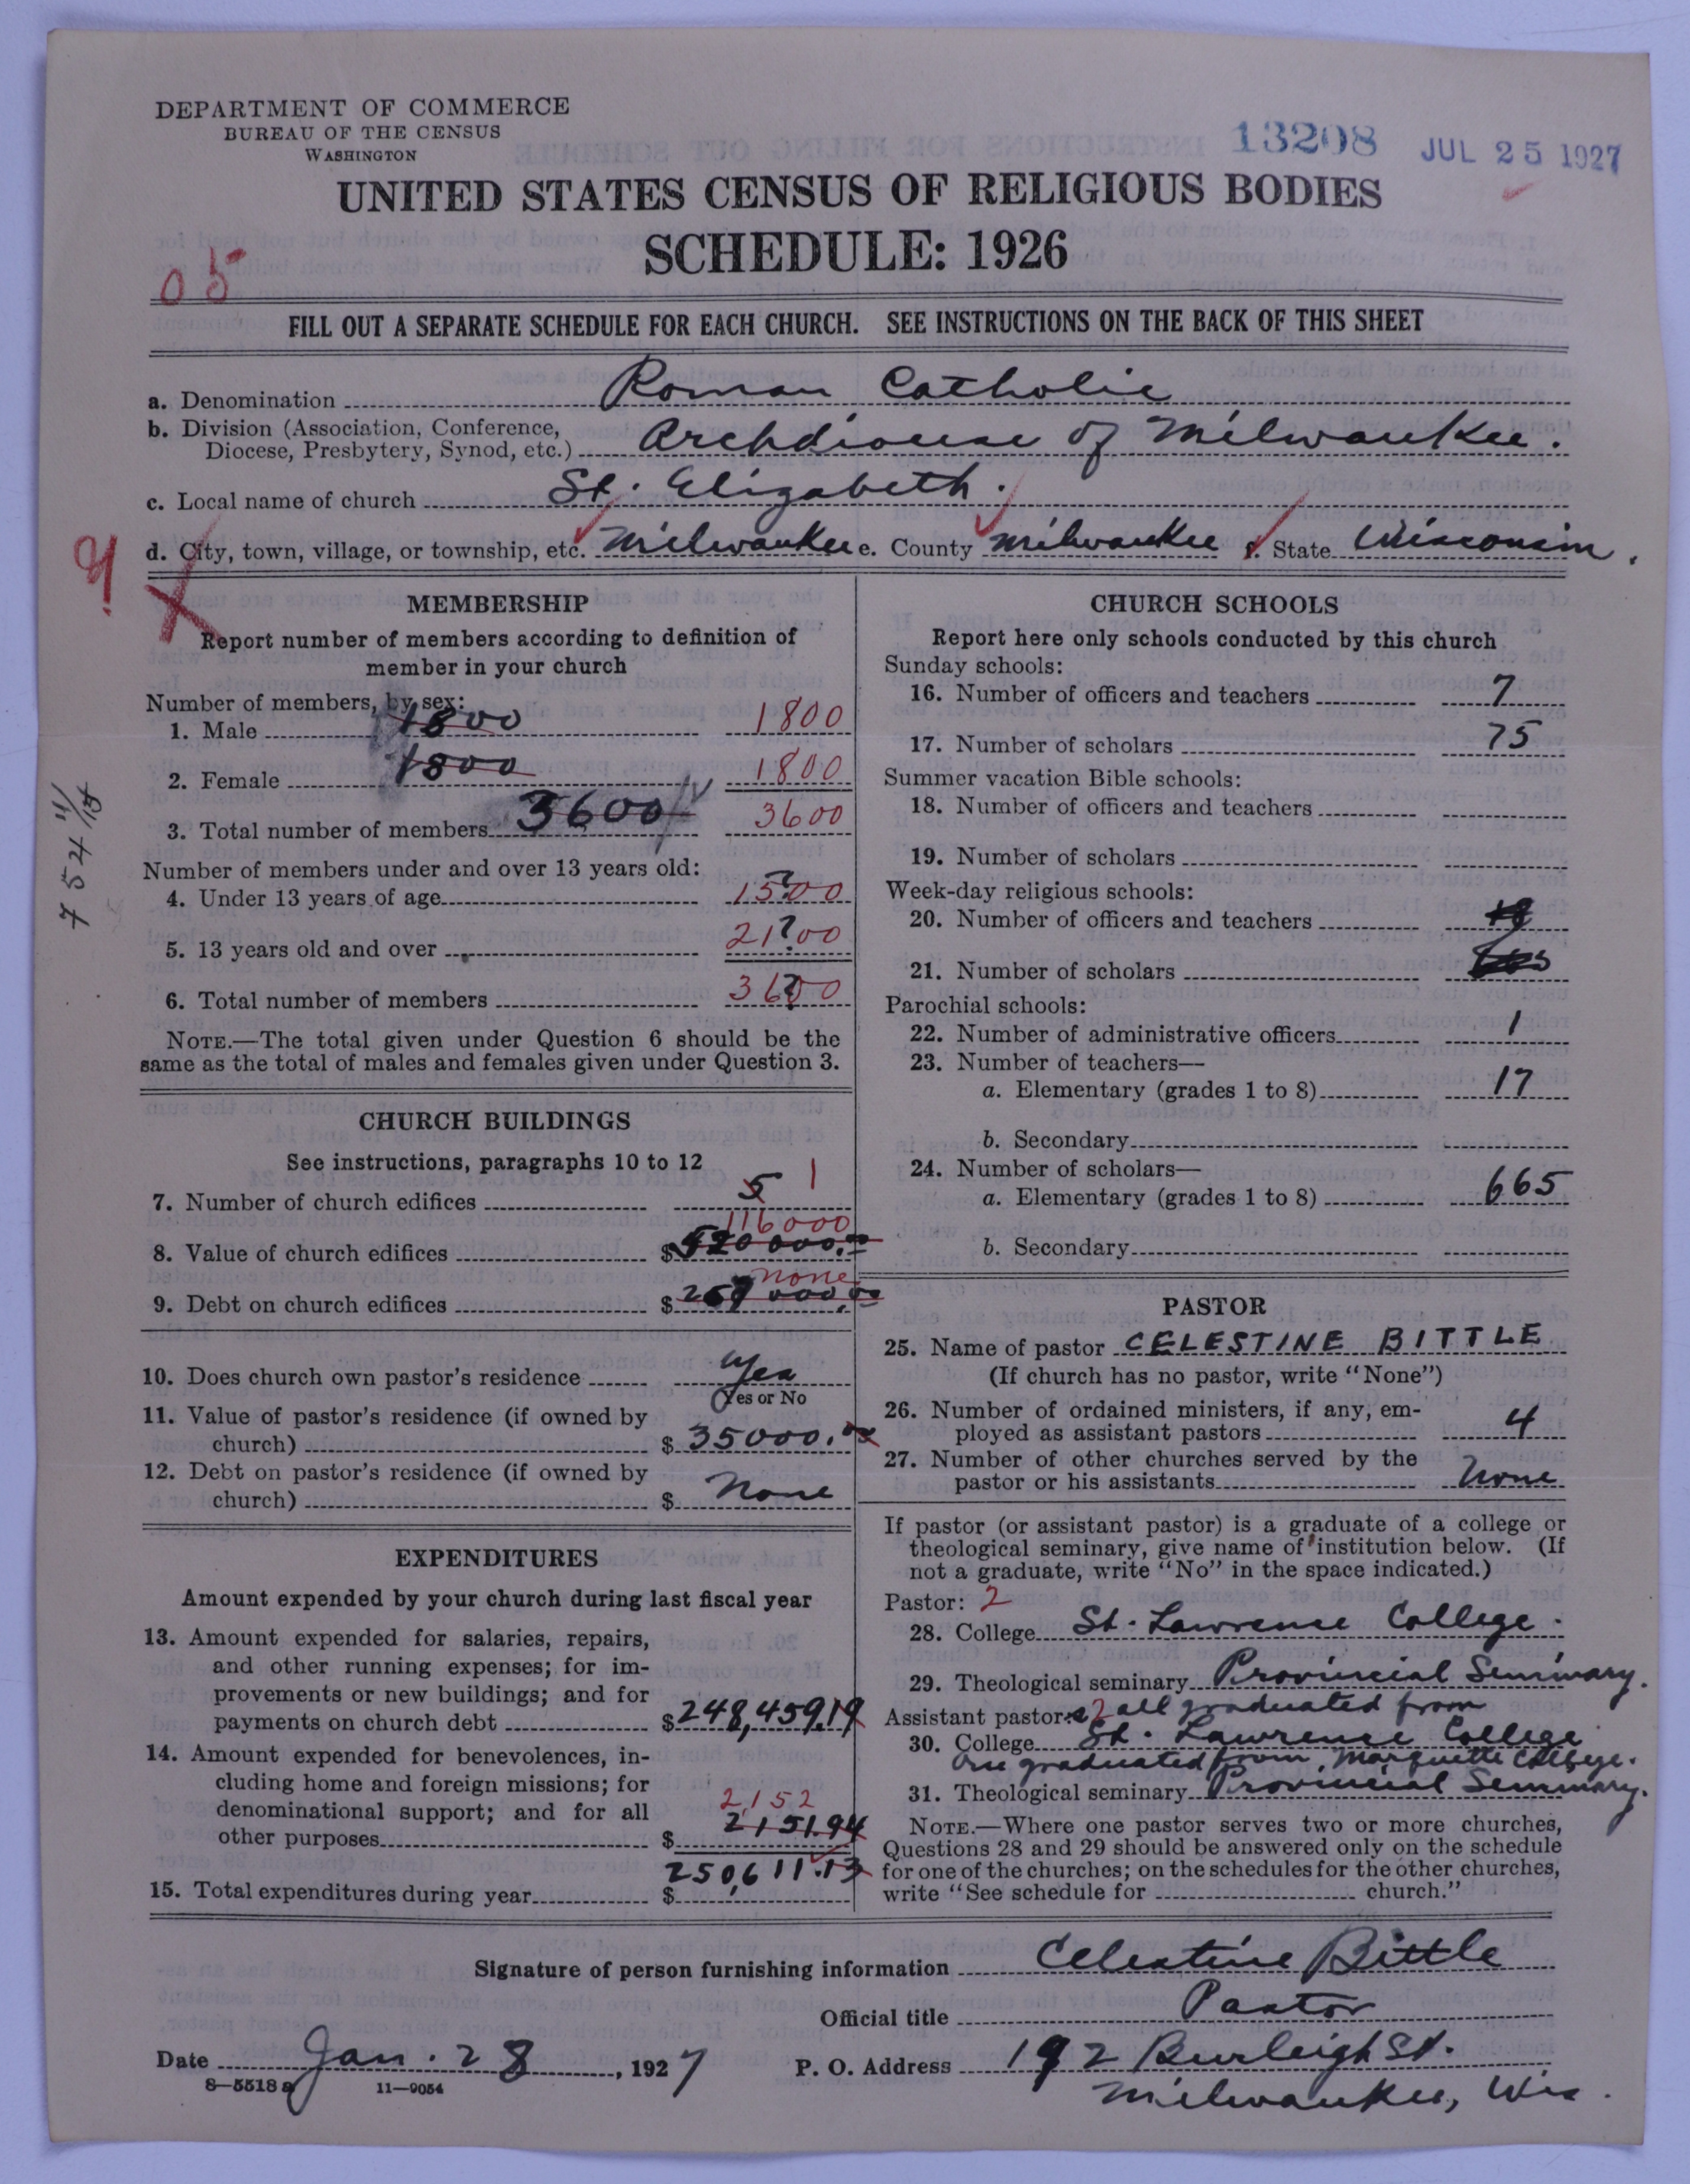 DEPARTMENT OF COMMERCE
BUREAU OF THE CENSUS
WASHINGTON
13208 JUL 25 1927
UNITED STATES CENSUS OF RELIGIOUS BODIES
SCHEDULE: 1926
05
FILL OUT A SEPARATE SCHEDULE FOR EACH CHURCH. SEE INSTRUCTIONS ON THE BACK OF THIS SHEET
a. Denomination Roman Catholic
b. Division (Association, Conference,
Diocese, Presbytery, Synod, etc.) Archdiocese of Milwaukee.
c. Local name of church St. Elizabeth.
d. City, town, village, or township, etc. Milwaukee e. County Milwaukee f. State Wisconsin.
MEMBERSHIP
Report number of members according to definition of
member in your church
Number of members, by sex:
1. Male 1800 1800
2. Female 1800 1800
3. Total number of members 3600 3600
Number of members under and over 13 years old:
4. Under 13 years of age ? 1500
5. 13 years old and over ? 2100
6. Total number of members ? 3600
NOTE.—The total given under Question 6 should be the
same as the total of males and females given under Question 3.
CHURCH BUILDINGS
See instructions, paragraphs 10 to 12
7. Number of church edifices 5 1
116000
8. Value of church edifices $ 520 000.00
none
9. Debt on church edifices $
10. Does church own pastor's residence Yes
(Yes or No
11. Value of pastor's residence (if owned by
church) $ 35000.00
12. Debt on pastor's residence (if owned by
church) $ None
EXPENDITURES
Amount expended by your church during last fiscal year
13. Amount expended for salaries, repairs,
and other running expenses; for im-
provements or new buildings; and for
payments on church debt $ 248,459.19
14. Amount expended for benevolences, in-
cluding home and foreign missions; for
denominational support; and for all
2,152
other purposes $ 2,151.94
15. Total expenditures during year $ 250,611.13
CHURCH SCHOOLS
Report here only schools conducted by this church
Sunday schools:
16. Number of officers and teachers 7
17. Number of scholars 75
Summer vacation Bible schools:
18. Number of officers and teachers
19. Number of scholars
Week-day religious schools:
20. Number of officers and teachers
21. Number of scholars
Parochial schools:
22. Number of administrative officers 1
23. Number of teachers—
a. Elementary (grades 1 to 8) 17
b. Secondary
24. Number of scholars—
a. Elementary (grades 1 to 8) 665
b. Secondary
PASTOR
25. Name of pastor CELESTINE BITTLE
(If church has no pastor, write "None")
26. Number of ordained ministers, if any, em-
ployed as assistant pastors 4
27. Number of other churches served by the
pastor or his assistants None
If pastor (or assistant pastor) is a graduate of a college or
theological seminary, give name of institution below. (If
not a graduate, write "No" in the space indicated.)
Pastor: 2
28. College St. Lawrence College.
29. Theological seminary Provincial Seminary.
Assistant pastor: 2 all graduated from
30. College St. Lawrence College
One graduated from Marquette College.
31. Theological seminary Provincial Seminary.
NOTE.—Where one pastor serves two or more churches,
Questions 28 and 29 should be answered only on the schedule
for one of the churches; on the schedules for the other churches,
write "See schedule for church."
Signature of person furnishing information Celestine Bittle
Official title Pastor
Date Jan. 28, 1927 P. O. Address 192 Burleigh St.
8—5518a 11—9054 Milwaukee, Wis.